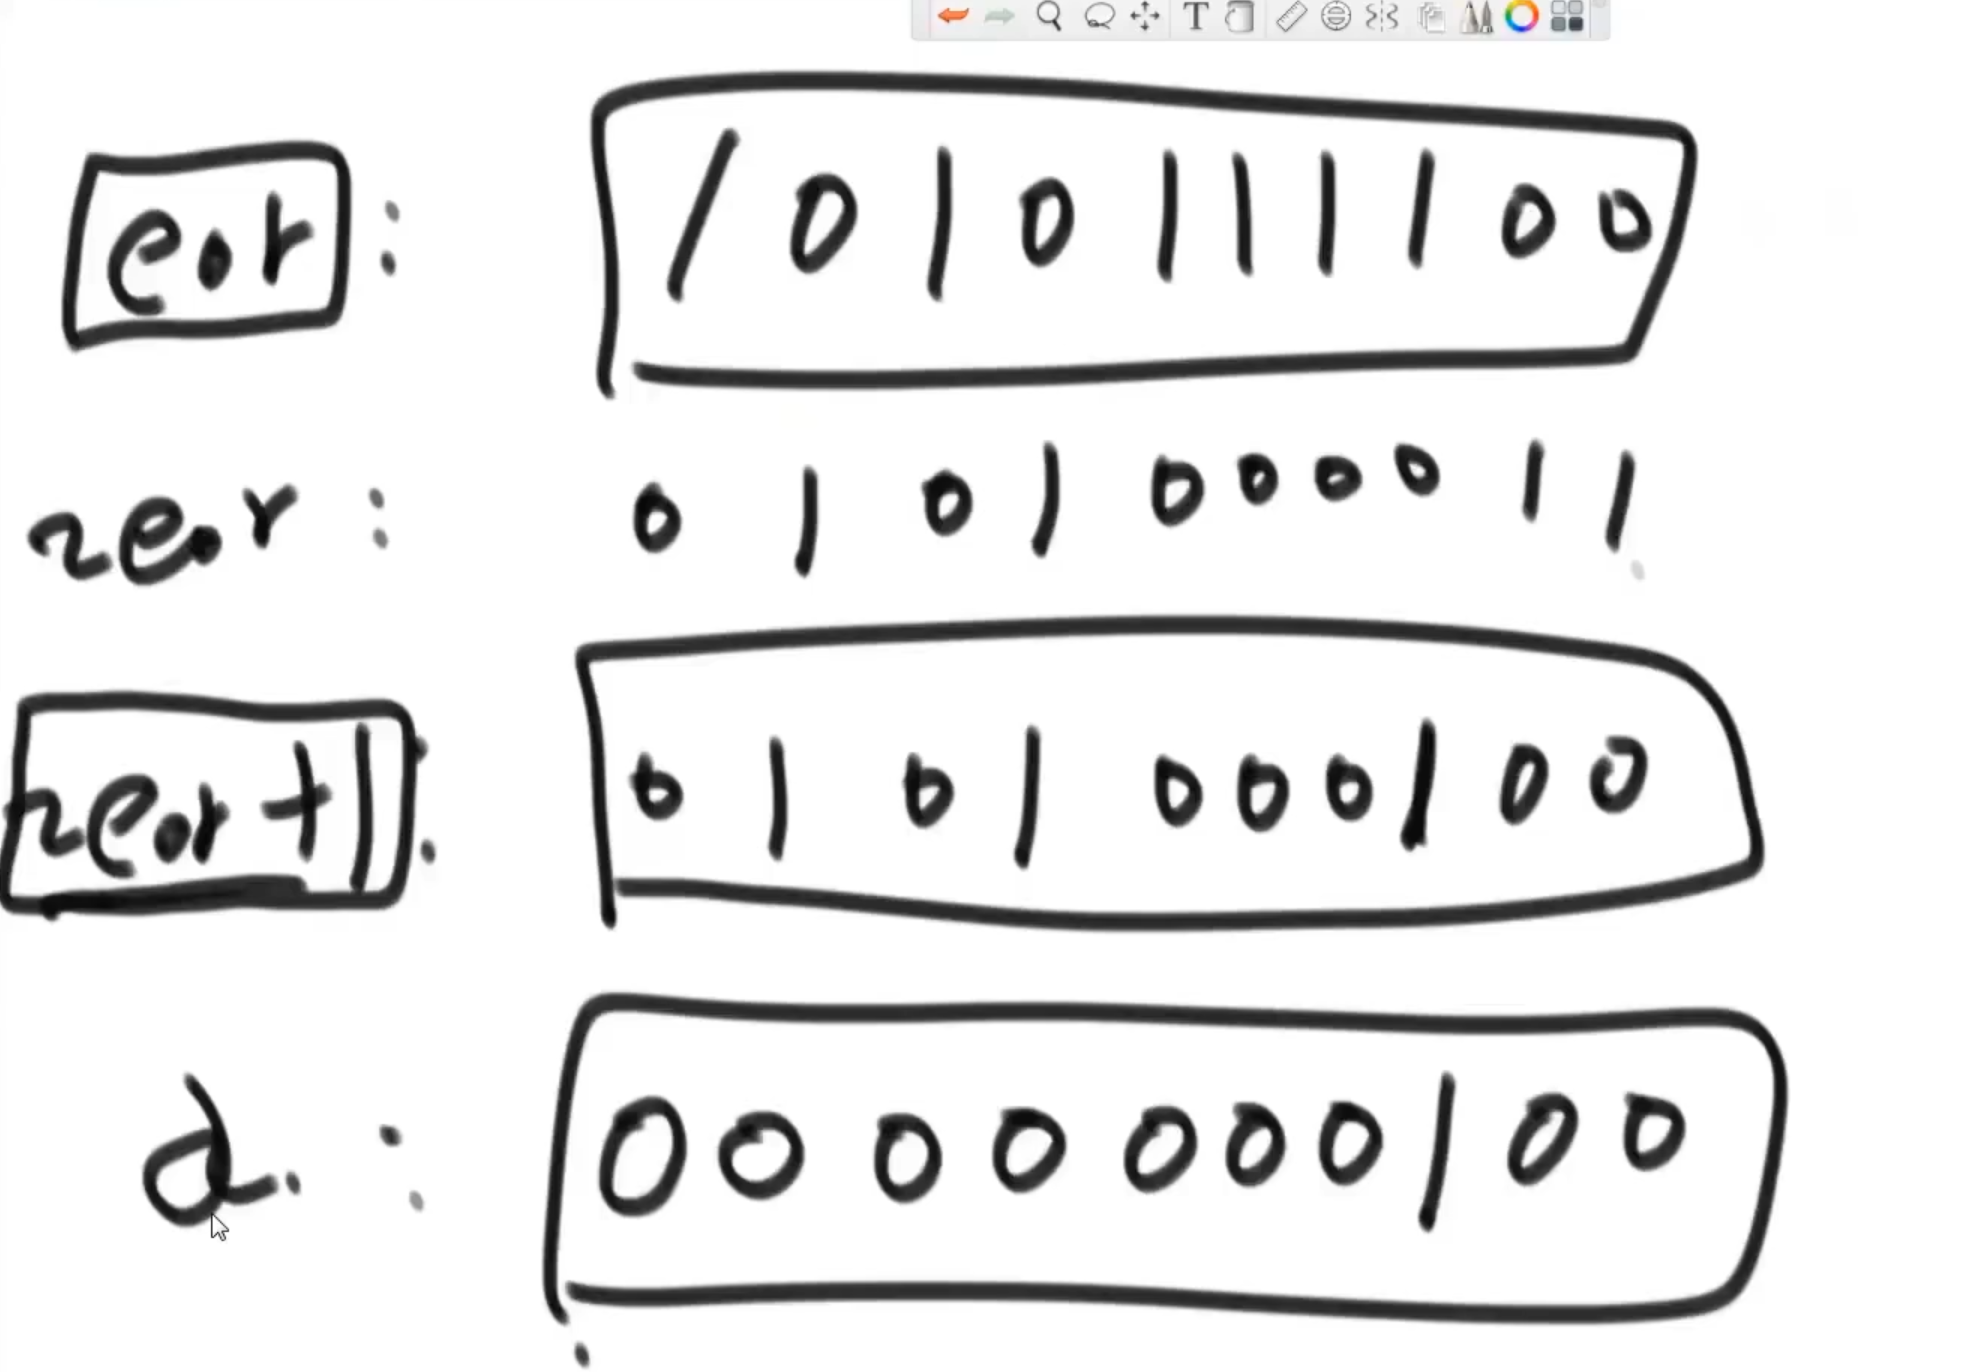 eor : 1010111100
~eor : 0101000011
~eor+1: 0101000100
d. : 0000000100